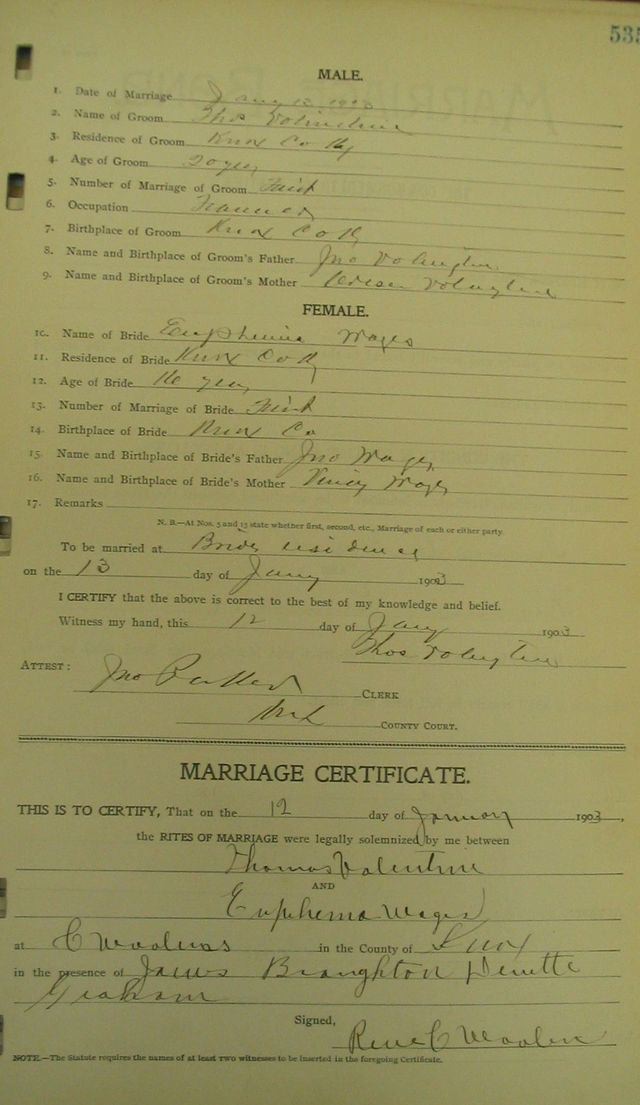 535
MALE.
1. Date of Marriage Jany 12 1903
2. Name of Groom Thos Volentine
3. Residence of Groom Knox Co Ky
4. Age of Groom 20 yrs
5. Number of Marriage of Groom First
6. Occupation Farmer
7. Birthplace of Groom Knox Co Ky
8. Name and Birthplace of Groom's Father Jno Volentine
9. Name and Birthplace of Groom's Mother Volentine
FEMALE.
10. Name of Bride Euphemia Wages
11. Residence of Bride Knox Co Ky
12. Age of Bride 16 years
13. Number of Marriage of Bride First
14. Birthplace of Bride Knox Co
15. Name and Birthplace of Bride's Father Jno Wages
16. Name and Birthplace of Bride's Mother Wages
17. Remarks
N. B.—At Nos. 5 and 13 state whether first, second, etc., Marriage of each or either party
To be married at Brides residence
on the 13 day of Jany 1903
I CERTIFY that the above is correct to the best of my knowledge and belief.
Witness my hand, this 12 day of Jany 1903
Thos Volentine
ATTEST: Jno CLERK
COUNTY COURT.
MARRIAGE CERTIFICATE.
THIS IS TO CERTIFY, That on the 12 day of January 1903,
the RITES OF MARRIAGE were legally solemnized by me between
Thomas Valentine
AND
Euphema Wages
at C Woolums in the County of Knox
in the presence of James Broughton
Graham
Signed,
Rev C Woolum
NOTE.—The Statute requires the names of at least TWO witnesses to be inserted in the foregoing Certificate.